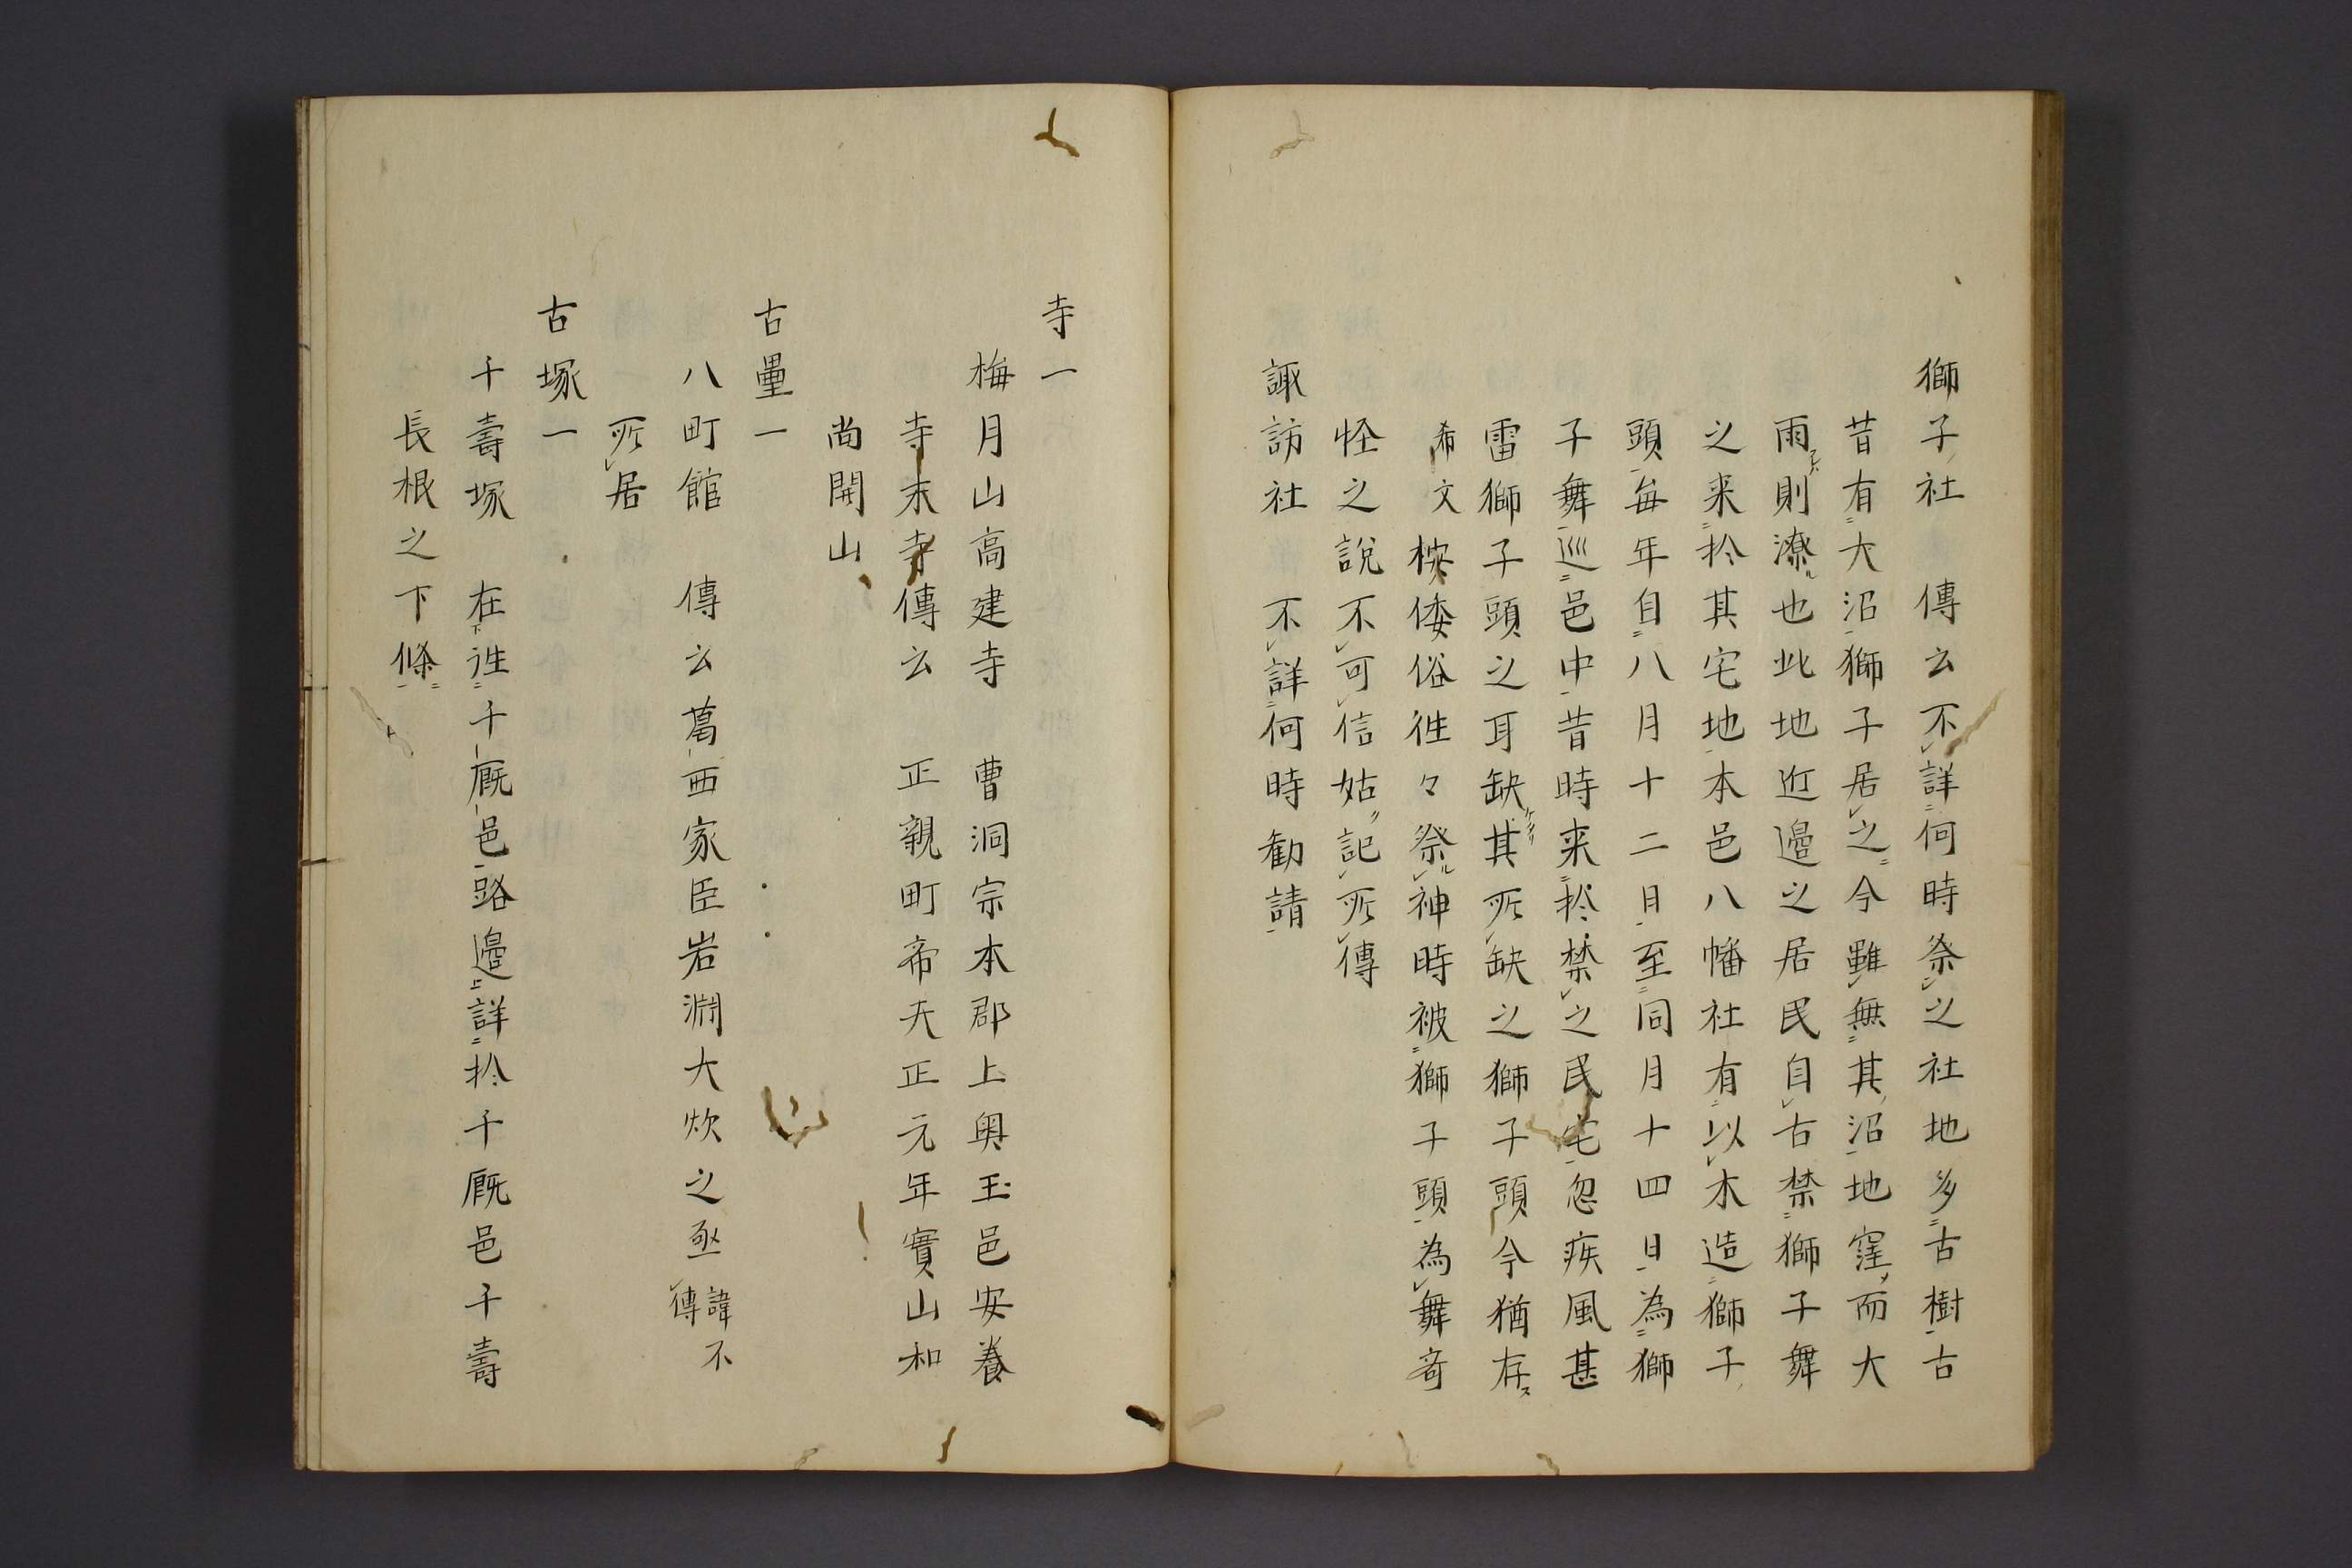 獅子社　傳云不詳何時祭之社地多古樹古
昔有大沼獅子居之今雖無其沼地窪而大
雨則潦也此地近邉之居民自古禁獅子舞
之来於其宅地本邑八幡社有以木造獅子
頭毎年自八月十二日至同月十四日為獅
子舞巡邑中昔時来於禁之民宅忽疾風甚
雷獅子頭之耳缺其所缺之獅子頭今猶存
希文桉倭俗徃々祭神時被獅子頭為舞奇
怪之說不可信姑記所傳
諏訪社　不詳何時勧請
寺一
梅月山高建寺　曹洞宗本郡上奥玉邑安養
寺末寺傳云　正親町帝天正元年實山和
尚開山
古壘一
八町館　傳云葛西家臣岩淵大炊之亟諱不傳
所居
古塚一
千壽塚　在徃千厩邑路邉詳於千厩邑千壽
長根之下條